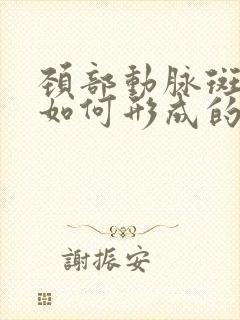 頚部動脉斑
如何形成的
謝振安